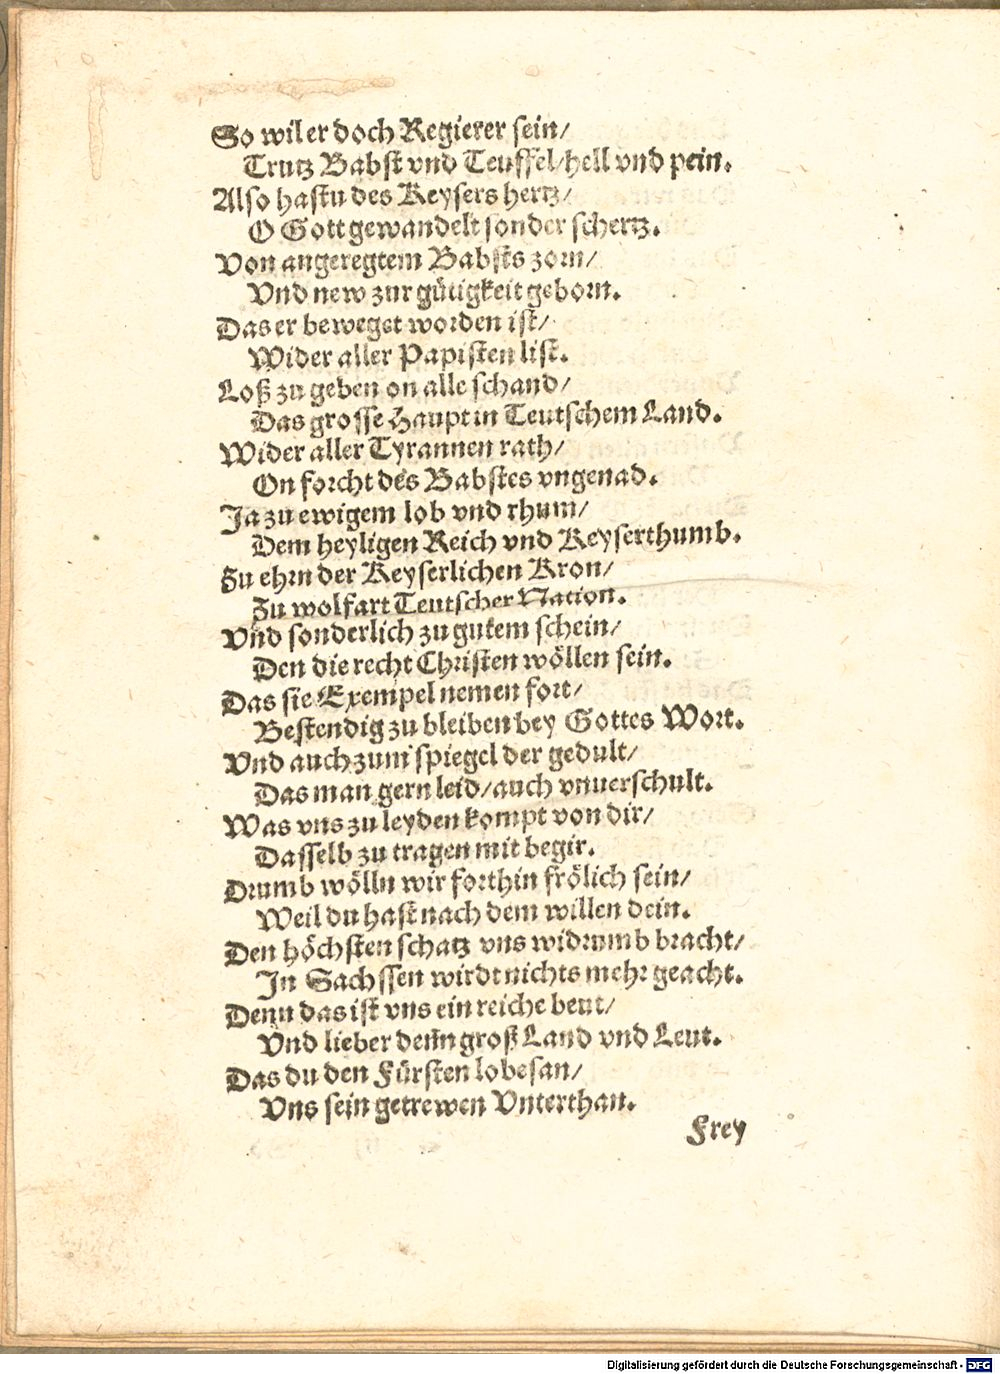 So wil er doch Regierer sein/
Trutz Babst vnd Teuffel/hell vnd pein.
Also hastu des Keysers hertz/
O Gott gewandelt sonder schertz.
Von angeregtem Babsts zorn/
Vnd new zur gütigkeit geborn.
Das er beweget worden ist/
Wider aller Papisten list.
Loß zu geben on alle schand/
Das grosse Haupt in Teutschem Land.
Wider aller Tyrannen rath/
On forcht des Babstes vngenad.
Ja zu ewigem lob vnd rhum/
Dem heyligen Reich vnd Keyserthumb.
Zu ehrn der Keyserlichen Kron/
Zu wolfart Teutscher Nation.
Vnd sonderlich zu gutem schein/
Den die recht Christen wöllen sein.
Das sie Exempel nemen fort/
Bestendig zu bleiben bey Gottes Wort.
Vnd auch zum spiegel der gedult/
Das man gern leid/auch vnuerschult.
Was vns zu leyden kompt von dir/
Dasselb zu tragen mit begir.
Drumb wölln wir forthin frölich sein/
Weil du hast nach dem willen dein.
Den höchsten schatz vns widrumb bracht/
In Sachssen wirdt nichts mehr geacht.
Denn das ist vns ein reiche beut/
Vnd lieber denn groß Land vnd Leut.
Das du den Fürsten lobesan/
Vns sein getrewen Vnterthan.
Frey
Digitalisierung gefördert durch die Deutsche Forschungsgemeinschaft - DFG